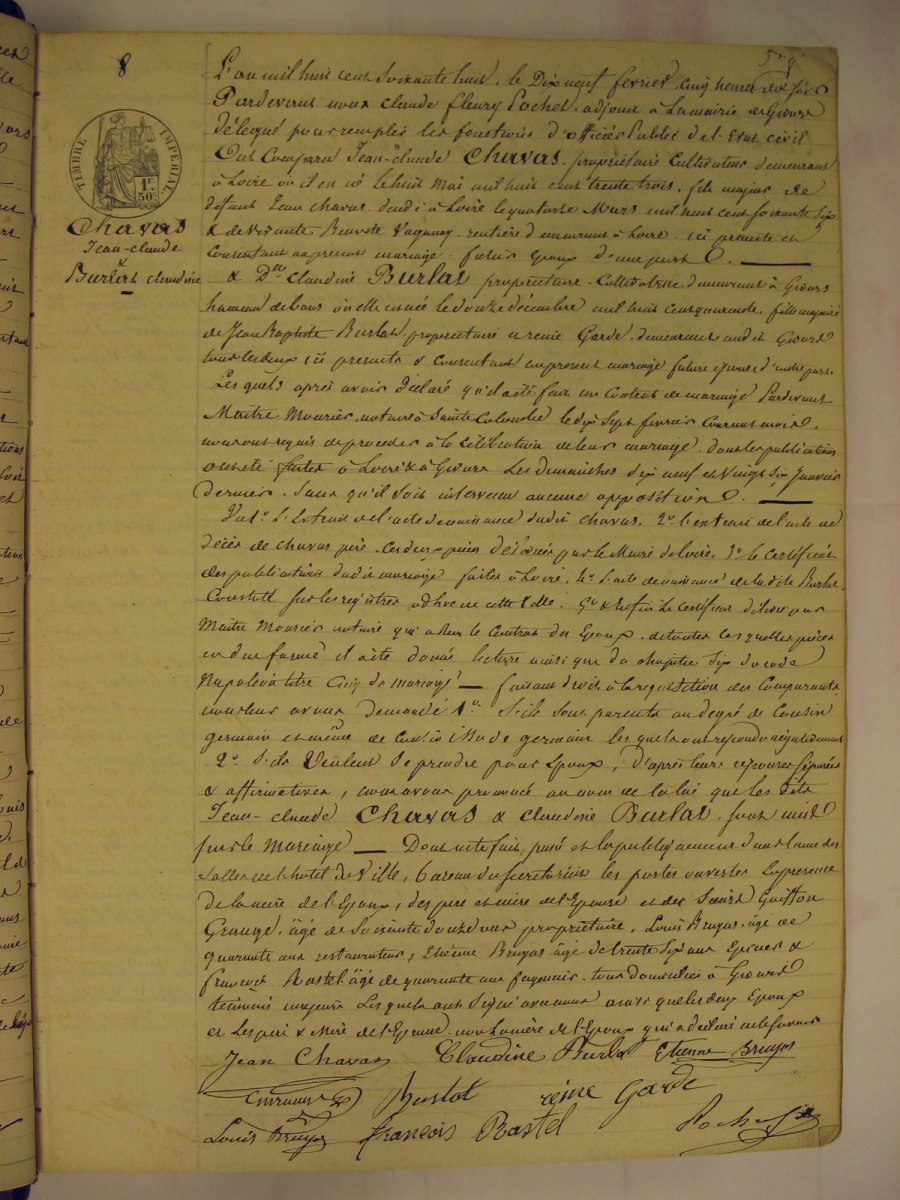 8
TIMBRE IMPERIAL
1F. 50c.
Chavas
Jean-claude
&
Burlat claudine
L'an mil huit cent soixante huit, le Dix neuf fevrier cinq heures du soir
Pardevant nous claude fleury Pochet, adjoint à la mairie de Givors
délégué pour remplir les fonctions d'officier Public de l'Etat civil
Ont Comparu Jean-claude Chavas propriétaire Cultivateur demeurant
à Loire où il est né le huit Mai mil huit cent trente trois, fils majeur de
défunt Jean chavas décédé à Loire le quatorze Mars mil huit cent soixante six
& de vivante Vaganay rentière demeurant à Loire ici présente et
consentant au présent mariage futur Epoux d'une part.
& Dlle claudine Burlat propriétaire Cultivatrice demeurant à Givors
hameau de bans où elle est née le douze décembre mil huit cent quarante, fille majeure
de Jean Baptiste Burlat propriétaire & reine Garde demeurant audit Givors
tous les deux ici présents & consentant au présent mariage future épouse d'autre part.
Lesquels après avoir déclaré qu'il a été fait un Contrat de mariage Pardevant
Maître Mourier, notaire à Sainte Colombe le dix sept fevrier Courant mois,
nous ont requis de proceder à la célébration de leur mariage dont les publications
ont été faites à Loire & à Givors les dimanches dix neuf et vingt six Janvier
dernier. Sans qu'il soit intervenu aucune opposition.
Vu 1° L'Extrait de l'acte de naissance dudit chavas. 2° l'extrait de l'acte de
décès de chavas père. ces deux pièces délivrées par le Maire de Loire, 3° le certificat
des publications dudit mariage faites à Loire, 4° L'acte de naissance de la dite Burlat,
Constaté sur les registres de cette Ville. 5° & enfin le certificat délivré par
Maître Mourier notaire qui a reçu le Contrat des Epoux. de toutes lesquelles pièces
en due forme il a été donné lecture ainsi que du chapitre six du code
Napoléon titre Cinq du mariage — faisant droit à la requisition des Comparants,
nous leur avons demandé 1° S'ils sont parents au degré de Cousin
germain et même de cousin issu de germain lesquels ont repondu négativement
2° S'ils Veulent se prendre pour Epoux, d'après leurs réponses séparées
& affirmatives, nous avons prononcé au nom de la loi que les dits
Jean-claude Chavas & claudine Burlat, sont unis
par le mariage — Dont acte fait, passé et lu publiquement dans l'une des
salles de l'hotel de Ville, bureau du secretariat les portes ouvertes En presence
de la mère de l'Epoux, des père et mère de l'Epouse et des Sieurs
âgé de soixante douze ans propriétaire, Louis Bruyas âgé de
quarante ans restaurateur, Etienne Bruyas âgé de trente six ans Epicier &
françois Rastel âgé de quarante ans tous domiciliés à Givors
témoins majeurs Lesquels ont signé avec nous ainsi que les deux Epoux
et les père & mère de l'Epouse non la mère de l'Epoux qui a déclaré ne le savoir
Jean Chavas Claudine Burlat Etienne Bruyas
Burlat reine Garde
Louis Bruyas françois Rastel Pochet